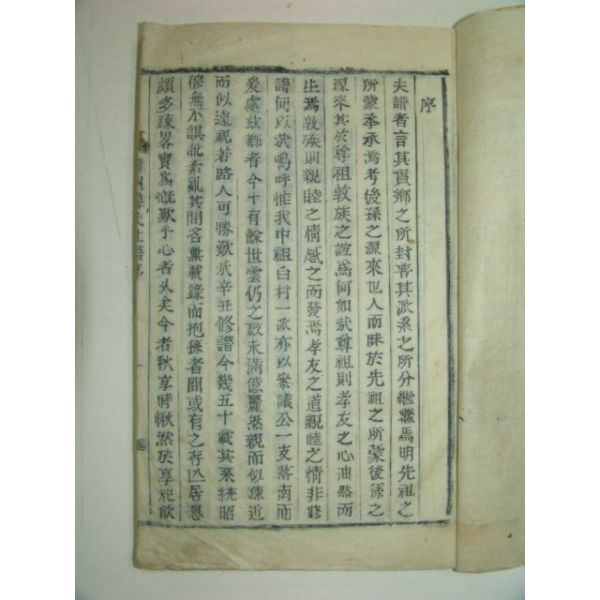 序
夫譜者言其貫鄕之所封著其派系之所分繼繼焉明先祖之
所蒙承承焉考後孫之源來也人而昧於先祖之所蒙後孫之
源來其於尊祖敦族之誼爲何如哉尊祖則孝友之心油然而
生焉敦族則親睦之情感之而發焉孝友之道親睦之情非修
譜何以哉嗚呼惟我中祖白村一派亦以參議公一支落南而
爰處玆鄕者今十有餘世雲仍之數未滿億麗然親而似疎近
而似遠視若路人可勝歎哉辛丑修譜今幾五十載其系統昭
穆無不誤訛紊亂其間名無載錄而抱孫者間或有之存亡居息
頗多疎畧實爲慨歎乎心者久矣今者秋享時愀然於享祀飮